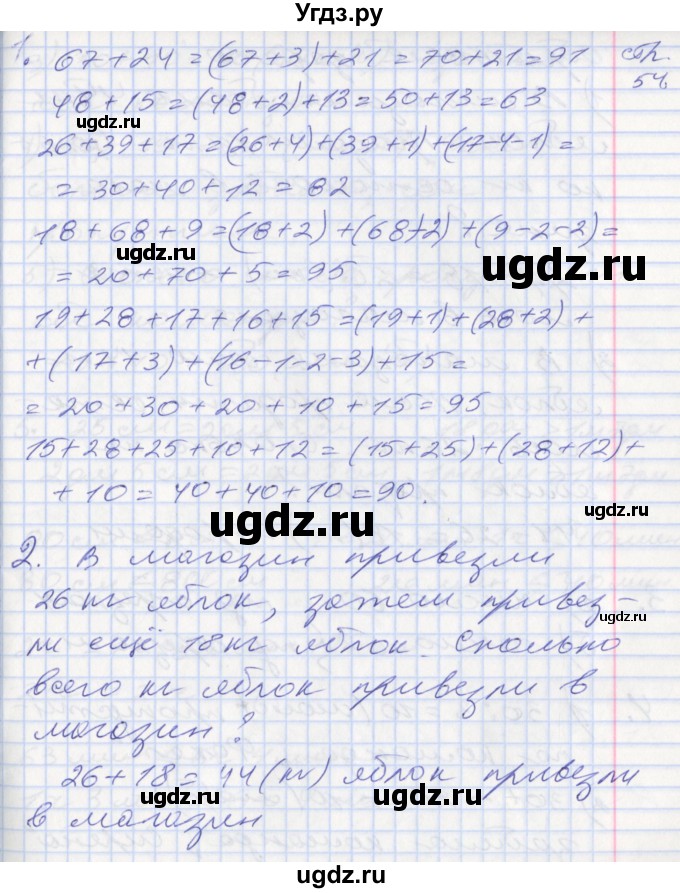 Угдз.ру
1. 67+24 = (67+3)+21 = 70+21 = 91 стр. 54
48+15 = (48+2)+13 = 50+13 = 63
ugdz.ru ugdz.ru
26+39+17 = (26+4)+(39+1)+(17-4-1) =
= 30+40+12 = 82
18+68+9 = (18+2)+(68+2)+(9-2-2) =
ugdz.ru ugdz.ru
= 20+70+5 = 95
19+28+17+16+15 = (19+1)+(28+2)+
+(17+3)+(16-1-2-3)+15 =
ugdz.ru ugdz.ru
= 20+30+20+10+15 = 95
15+28+25+10+12 = (15+25)+(28+12)+
+10 = 40+40+10 = 90.
ugdz.ru
2. В магазин привезли
26 кг яблок, затем привез-
ugdz.ru
ли ещё 18 кг яблок. Сколько
ugdz.ru
всего кг яблок привезли в
магазин?
26+18 = 44 (кг) яблок привезли
ugdz.ru ugdz.ru
в магазин
ugdz.ru